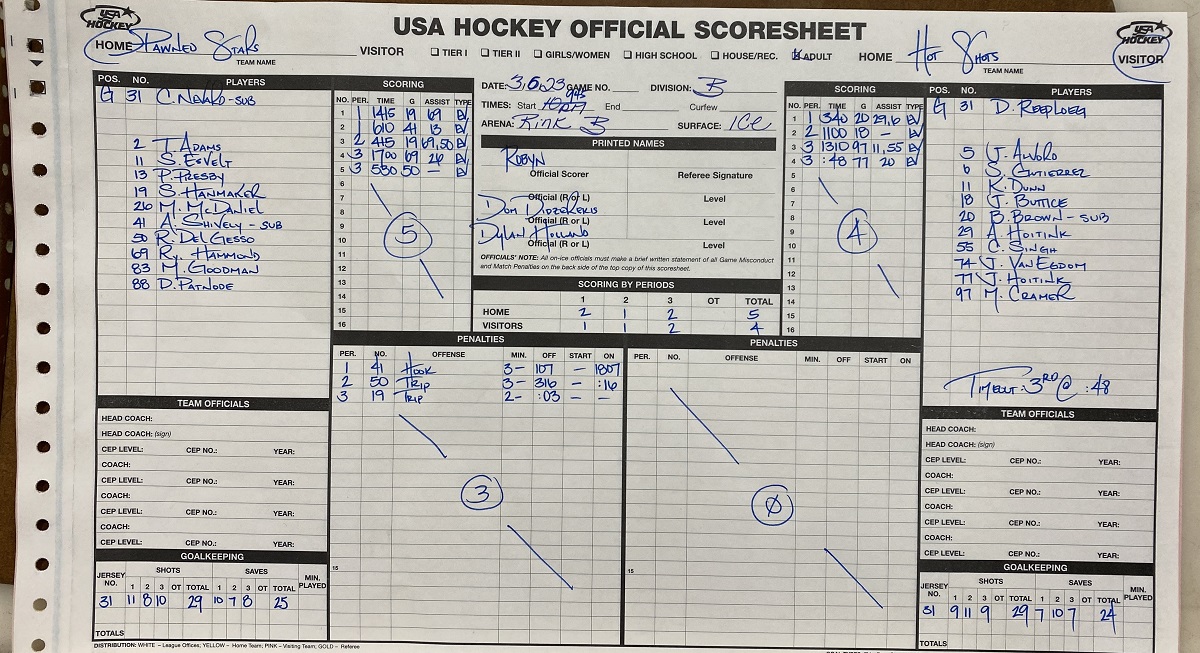 USA HOCKEY OFFICIAL SCORESHEET
USA HOCKEY
HOME PAWNED STARS VISITOR
TEAM NAME
☐ TIER I ☐ TIER II ☐ GIRLS/WOMEN ☐ HIGH SCHOOL ☐ HOUSE/REC. ☑ ADULT
HOME HOT SHOTS VISITOR
TEAM NAME
USA HOCKEY
POS. NO. PLAYERS
G 31 C. NEVARO-SUB
2 T. ADAMS
11 S. ESVELT
13 P. PRESBY
19 S. HANMAKER
26 M. MCDANIEL
41 A. SHIVELY - SUB
50 R. DEL GESSO
69 RY. HAMMOND
83 M. GOODMAN
88 D. PATNODE
TEAM OFFICIALS
HEAD COACH:
HEAD COACH: (sign)
CEP LEVEL: CEP NO.: YEAR:
COACH:
CEP LEVEL: CEP NO.: YEAR:
COACH:
CEP LEVEL: CEP NO.: YEAR:
COACH:
CEP LEVEL: CEP NO.: YEAR:
GOALKEEPING
JERSEY NO. SHOTS SAVES MIN. PLAYED
1 2 3 OT TOTAL 1 2 3 OT TOTAL
31 11 8 10 29 10 7 8 25
TOTALS
SCORING
NO. PER. TIME G ASSIST TYPE
1 1 1415 19 69 EV
2 1 610 41 13 EV
3 2 415 19 69,50 EV
4 3 1700 69 26 EV
5 3 530 50 — EV
6
7
8
9
10
11
12
13
14
15
16
5
DATE: 3.6.23 GAME NO. DIVISION: B
TIMES: Start 10PM 945 End Curfew
ARENA: RINK B SURFACE: ICE
PRINTED NAMES
ROBYN
Official Scorer Referee Signature
Official (R or L) Level
Official (R or L) Level
DYLAN HOLLAND
Official (R or L) Level
OFFICIALS' NOTE: All on-ice officials must make a brief written statement of all Game Misconduct
and Match Penalties on the back side of the top copy of this scoresheet.
SCORING BY PERIODS
1 2 3 OT TOTAL
HOME 2 1 2 5
VISITORS 1 1 2 4
SCORING
NO. PER. TIME G ASSIST TYPE
1 1 340 20 29,6 EV
2 2 1100 18 — EV
3 3 1310 97 11,55 EV
4 3 :48 77 20 EV
5
6
7
8
9
10
11
12
13
14
15
16
4
PENALTIES
PER. NO. OFFENSE MIN. OFF START ON
1 41 HOOK 3- 107 — 1807
2 50 TRIP 3- 316 — :16
3 19 TRIP 2- :03 — —
3
15
PENALTIES
PER. NO. OFFENSE MIN. OFF START ON
Ø
15
POS. NO. PLAYERS
G 31 D. REEPLOEG
5 J. ALVORO
6 S. GUTIERREZ
11 K. DUNN
18 J. BUTTICE
20 B. BROWN - SUB
29 A. HOITINK
55 C. SINGH
74 J. VANEGDOM
77 J. HOITINK
97 M. CRAMER
TIMEOUT: 3RD @ :48
TEAM OFFICIALS
HEAD COACH:
HEAD COACH: (sign)
CEP LEVEL: CEP NO.: YEAR:
COACH:
CEP LEVEL: CEP NO.: YEAR:
COACH:
CEP LEVEL: CEP NO.: YEAR:
COACH:
CEP LEVEL: CEP NO.: YEAR:
GOALKEEPING
JERSEY NO. SHOTS SAVES MIN. PLAYED
1 2 3 OT TOTAL 1 2 3 OT TOTAL
31 9 11 9 29 7 10 7 24
TOTALS
DISTRIBUTION: WHITE – League Offices; YELLOW – Home Team; PINK – Visiting Team; GOLD – Referee